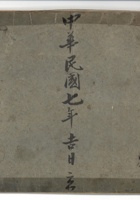 中華民國七年吉日立